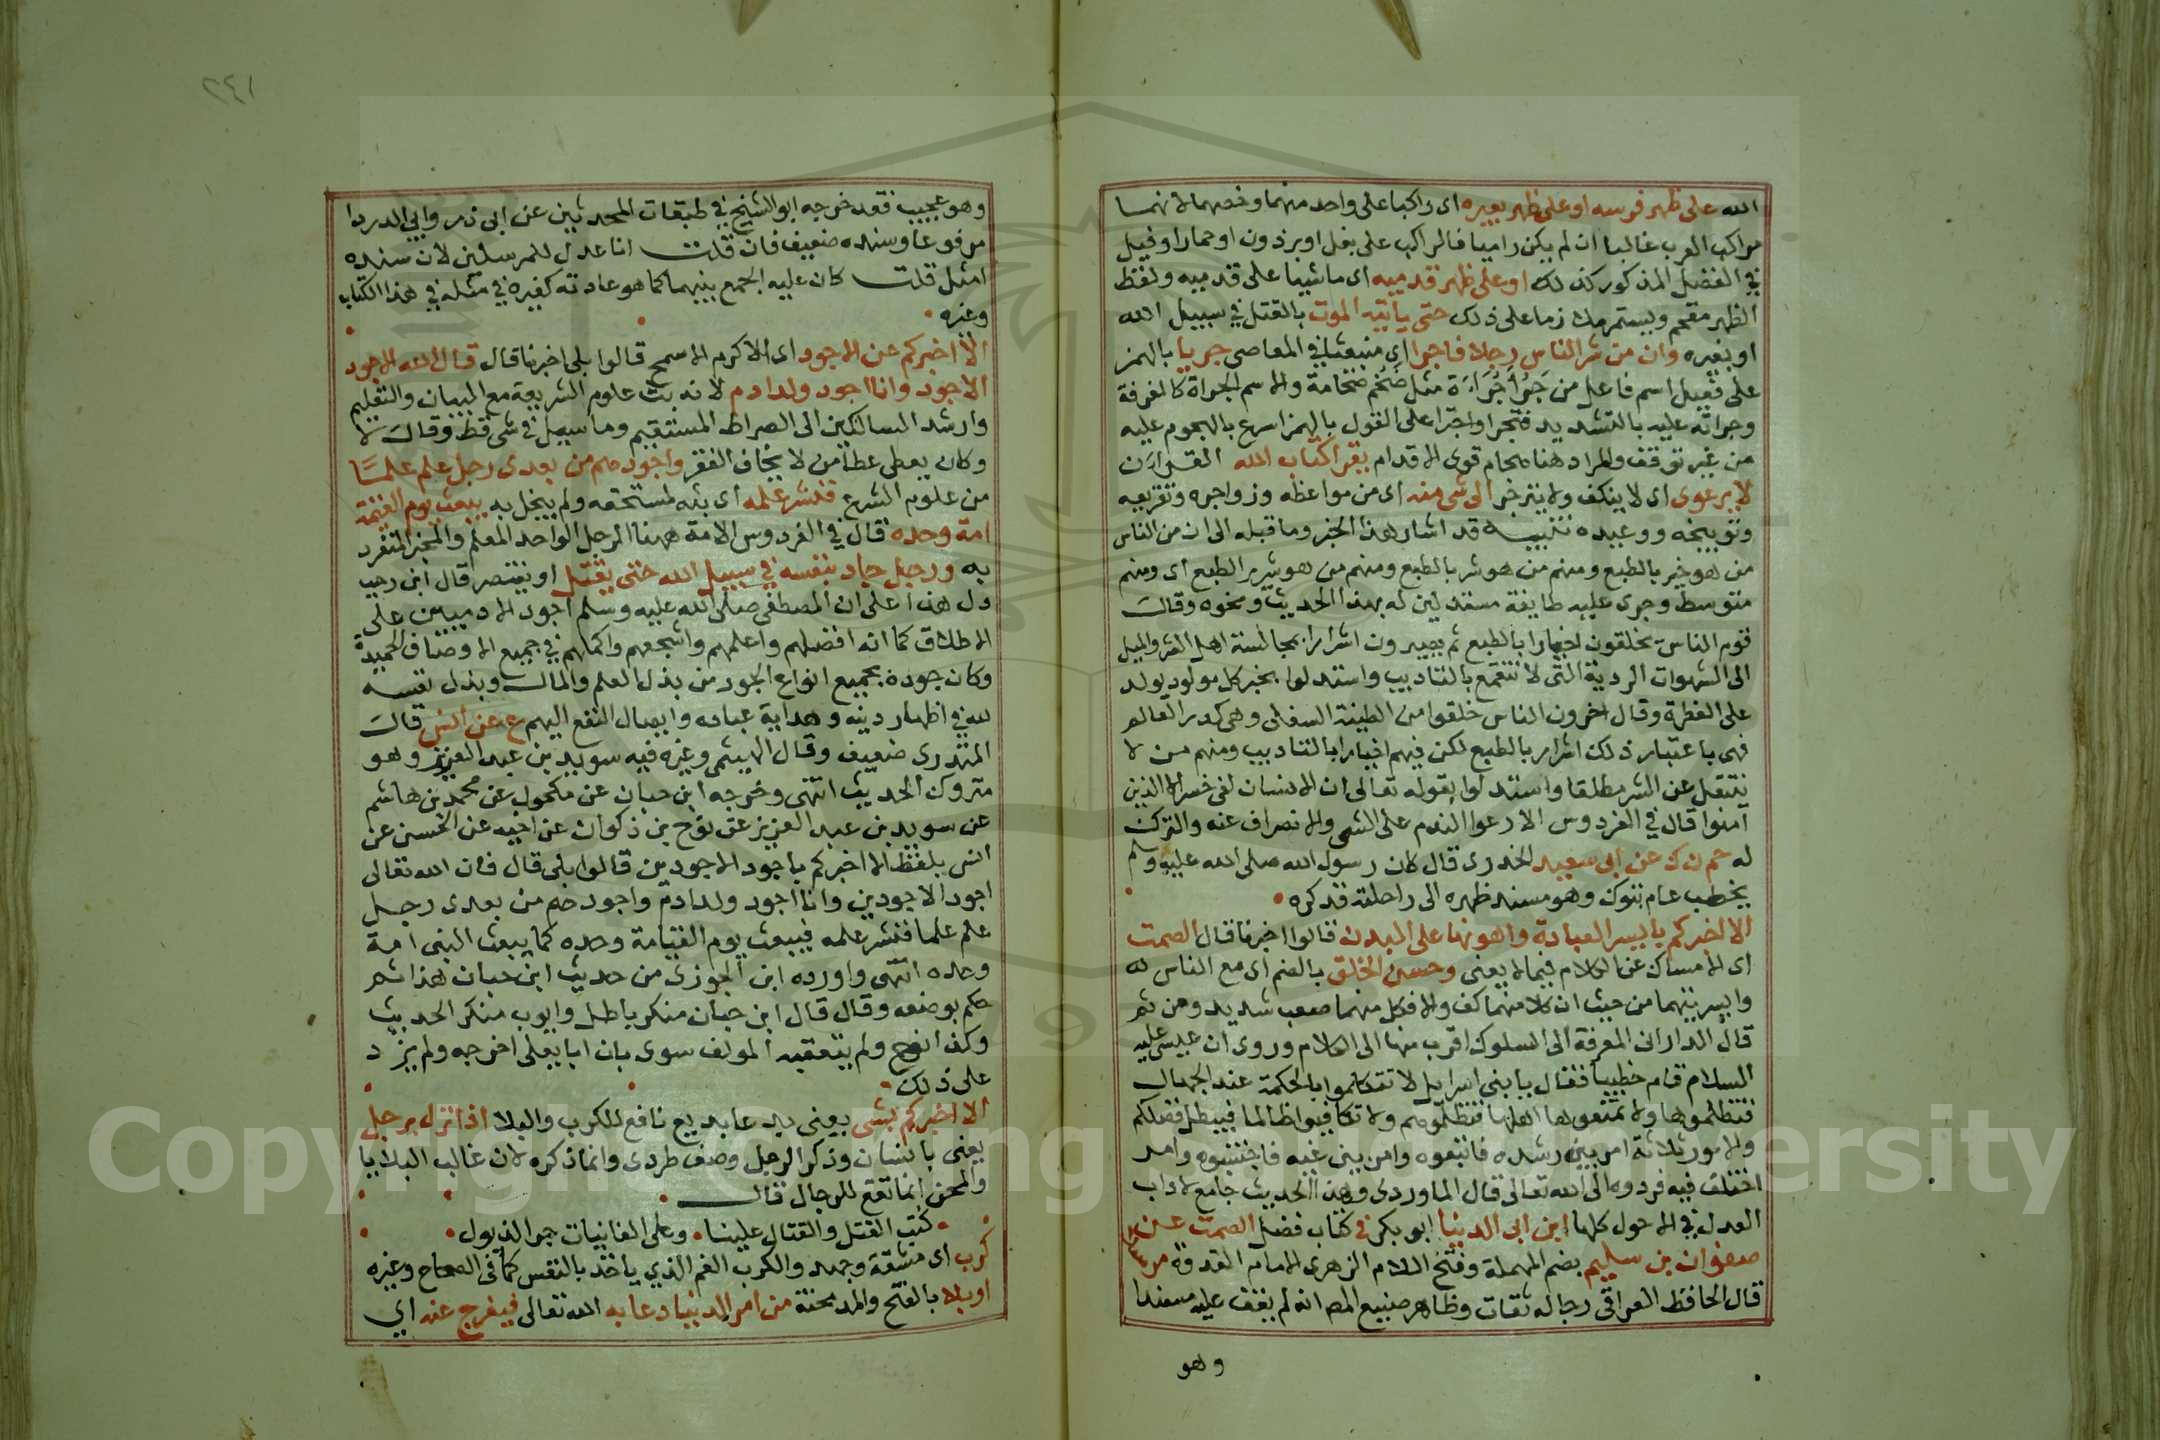 الله على ظهر فرسه او على ظهر بعيره اى راكبا على واحد منهما وخصهما لانهما
مراكب العرب غالبا ان لم يكن راميا فالراكب على بغل او برذون او حمار او فيل
في الفضل المذكور كذلك او على ظهر قدميه اى ماشيا على قدميه ولفظ
الظهر مقحم ويستمر ملازما على ذلك حتى ياتيه الموت بالقتل في سبيل الله
او بغيره وان من شر الناس رجلا فاجرا اى منبعثا في المعاصى جريا بالهمز
على فعيل اسم فاعل من جَرُأَ جُرَاءَة مثل ضَخُم ضخامة والاسم الجراة كالغرفة
وجراته عليه بالتشديد فتجرا واجترا على القول بالهمز اسرع بالهجوم عليه
من غير توقف والمراد هنا هجام قوى الاقدام يقرا كتاب الله القران
لا يرعوى اى لا ينكف ولا ينزجر الى شى منه اى من مواعظه وزواجره وتقريعه
وتوبيخه ووعيده تنبيه قد اشار هذا الخبر وما قبله الى ان من الناس
من هو خير بالطبع ومنهم من هو شر بالطبع ومنهم من هو شرير الطبع اى ومنهم
متوسط وجرى عليه طايفة مستدلين له بهذا الحديث ونحوه وقالت
قوم الناس يخلقون اخيارا بالطبع ثم يصيرون اشرارا بمجالسة اهل الشر والميل
الى الشهوات الردية التى لا تنقمع بالتاديب واستدلوا بخبر كل مولود يولد
على الفطرة وقال اخرون الناس خلقوا من الطينة السفلى وهى كدر العالم
فهى باعتبار ذلك اشرار بالطبع لكن فيهم اخيارا بالتاديب ومنهم من لا
ينتقل عن الشر مطلقا واستدلوا بقوله تعالى ان الانسان لفى خسر الا الذين
آمنوا قال في الفردوس الارعوا الندم على الشى والانصراف عنه والترك
له حم ن ك عن ابى سعيد الخدرى قال كان رسول الله صلى الله عليه وسلم
يخطب عام تبوك وهو مسند ظهره الى راحلته فذكره
الا اخبركم بايسر العبادة واهونها على البدن قالوا اخبرنا قال الصمت
اى الامساك عن الكلام فيما لا يعنى وحسن الخلق بالضم اى مع الناس له
وايسريتهما من حيث ان كلا منهما كف والا فكل منهما صعب شديد ومن ثم
قال الدارانى المعرفة الى السلوك اقرب منها الى الكلام وروى ان عيسى عليه
السلام قام خطيبا فقال يا بنى اسرايل لا تتكلموا بالحكمة عند الجهال
فتظلموها ولا تمنعوها اهلها فتظلموهم ولا تكافيوا ظالما فيبطل فضلكم
والامور ثلاثة امر بين رشده فاتبعوه وامر بين غيه فاجتنبوه وامر
اختلف فيه فردوه الى الله تعالى قال الماوردى وهذا الحديث جامع لاداب
العدل في الاحول كلها ابن ابى الدنيا ابو بكر في كتاب فضل الصمت عن
صفوان بن سليم بضم المهملة وفتح اللام الزهرى الامام القدوة مرسلا
قال الحافظ العراقى رجاله ثقات وظاهر صنيع المص انه لم يقف عليه مسندا
وهو
٢٤١
وهو عجيب فقد خرجه ابو الشيخ في طبقات المحدثين عن ابى ذر وابي الدردا
مرفوعا وسنده ضعيف فان قلت انما عدل للمرسلين لان سنده
امثل قلت كان عليه الجمع بينهما كما هو عادته كغيره في مثله في هذا الكتاب
وغيره
الا اخبركم عن الاجود اى الاكرم الاسمح قالوا بلى اخبرنا قال قال الله الاجود
الاجود وانا اجود ولد ادم لانه بث علوم الشريعة مع البيان والتعليم
وارشد السالكين الى الصراط المستقيم وما سيل في شى قط وقال لا
وكان يعطى عطا من لا يخاف الفقر واجودهم من بعدى رجل علم علما
من علوم الشرع فنشر علمه اى بثه لمستحقه ولم يبخل به يبعث يوم القيمة
امة وحده قال في الفردوس الامة ههنا الرجل الواحد المعلم والمخبر المتفرد
به ورجل جاد بنفسه في سبيل الله حتى يقتل او ينتصر قال ابن رجب
دل هذا على ان المصطفى صلى الله عليه وسلم اجود الادميين على
الاطلاق كما انه افضلهم واعلمهم واشجعهم واكملهم في جميع الاوصاف الحميدة
وكان جوده بجميع انواع الجود من بذل العلم والمال وبذل نفسه
لله في اظهار دينه وهداية عباده وايصال النفع اليهم ع عن انس قال
المنذرى ضعيف وقال الهيثمى وغيره فيه سويد بن عبد العزيز وهو
متروك الحديث انتهى وخرجه ابن حبان عن مكحول عن محمد بن هاشم
عن سويد بن عبد العزيز عن نوح بن ذكوان عن اخيه عن الحسن عن
انس بلفظ الا اخبركم باجود الاجودين قالوا بلى قال فان الله تعالى
اجود الاجودين وانا اجود ولد ادم واجودهم من بعدى رجل
علم علما فنشر علمه فيبعث يوم القيامة وحده كما يبعث النبى امة
وحده انتهى واورده ابن الجوزى من حديث ابن حبان هذا ثم
حكم بوضعه وقال قال ابن حبان منكر باطل وايوب منكر الحديث
وكذا نوح ولم يتعقبه المولف سوى بان ابا يعلى اخرجه ولم يزد
على ذلك
الا اخبركم بشى يعنى بدعا بديع نافع للكرب والبلا اذا نزل برجل
يعنى بانسان وذكر الرجل وصف طردى وانما ذكره لان غالب البلايا
والمحن انما تقع للرجال قال
كُتب القتل والقتال علينا وعلى الغانيات جر الذيول
كرب اى مشقة وجهد والكرب الغم الذي ياخذ بالنفس كما فى الصحاح وغيره
او بلا بالفتح والمد محنة من امر الدنيا دعا به الله تعالى فيفرج عنه اي
Copyright © King Saud University